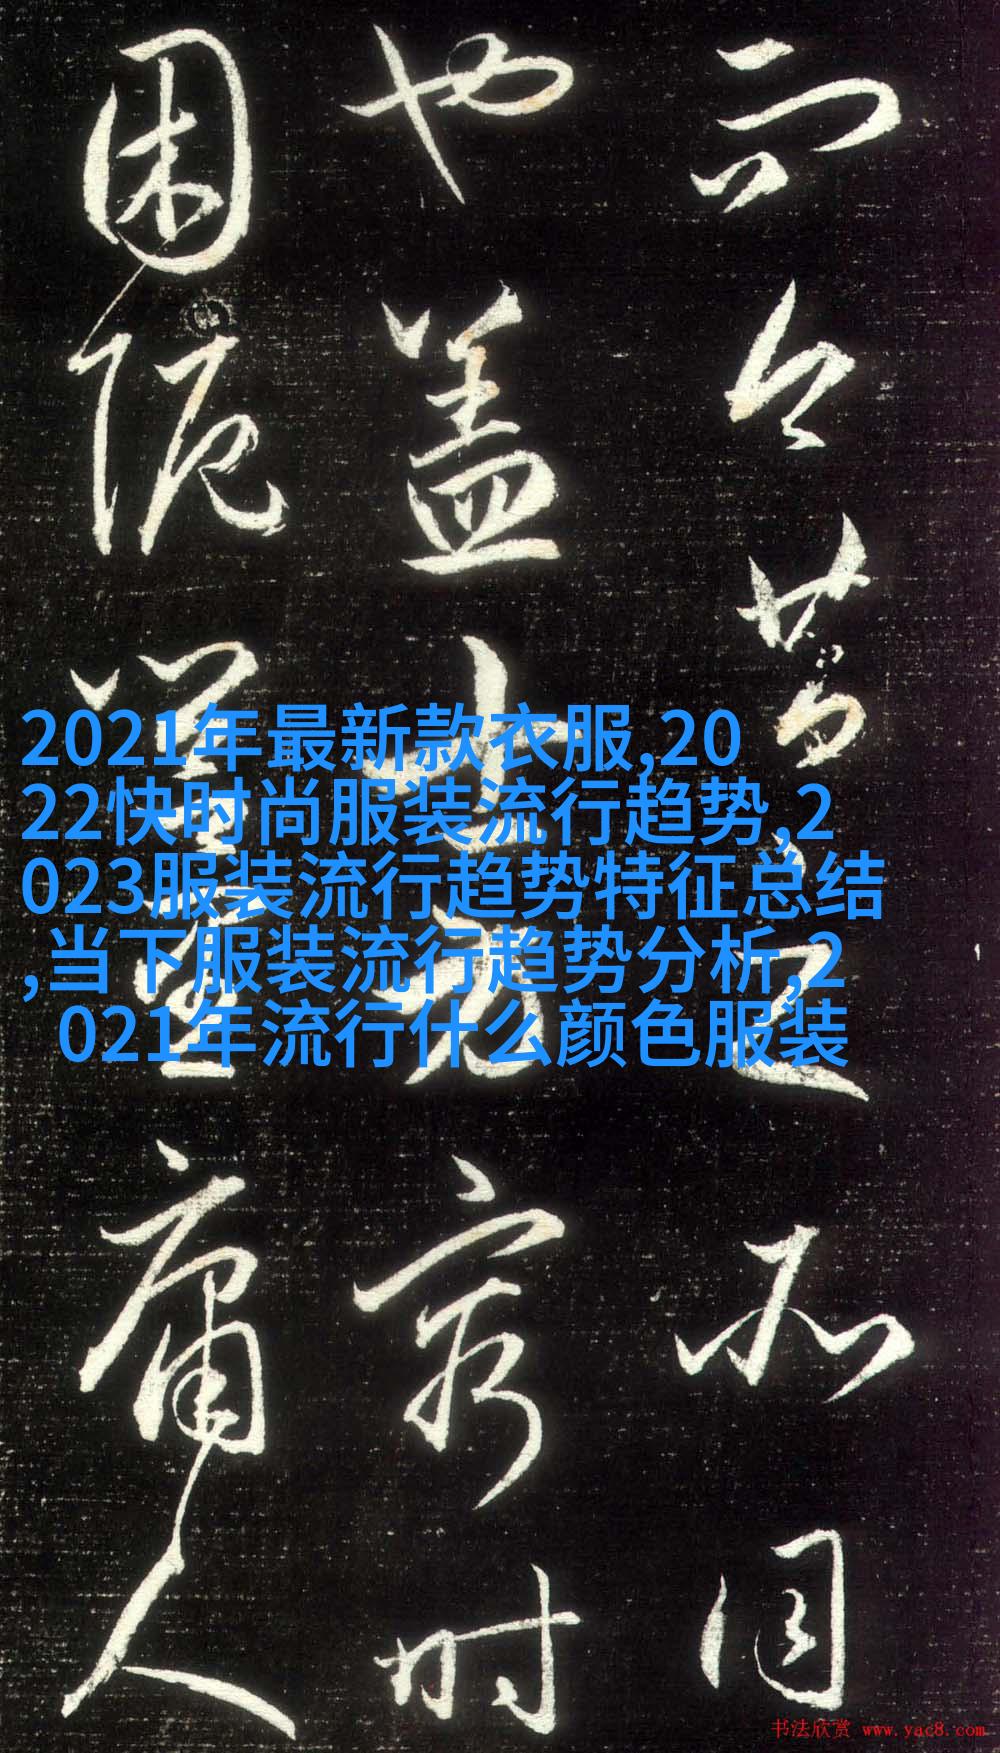 而今昔之所同
也盖士方窮时
困阨閭里庸人
2021年最新款衣服,20
22快时尚服装流行趋势,2
023服装流行趋势特征总结
,当下服装流行趋势分析,2
021年流行什么颜色服装
书法欣赏 www.yac8.com